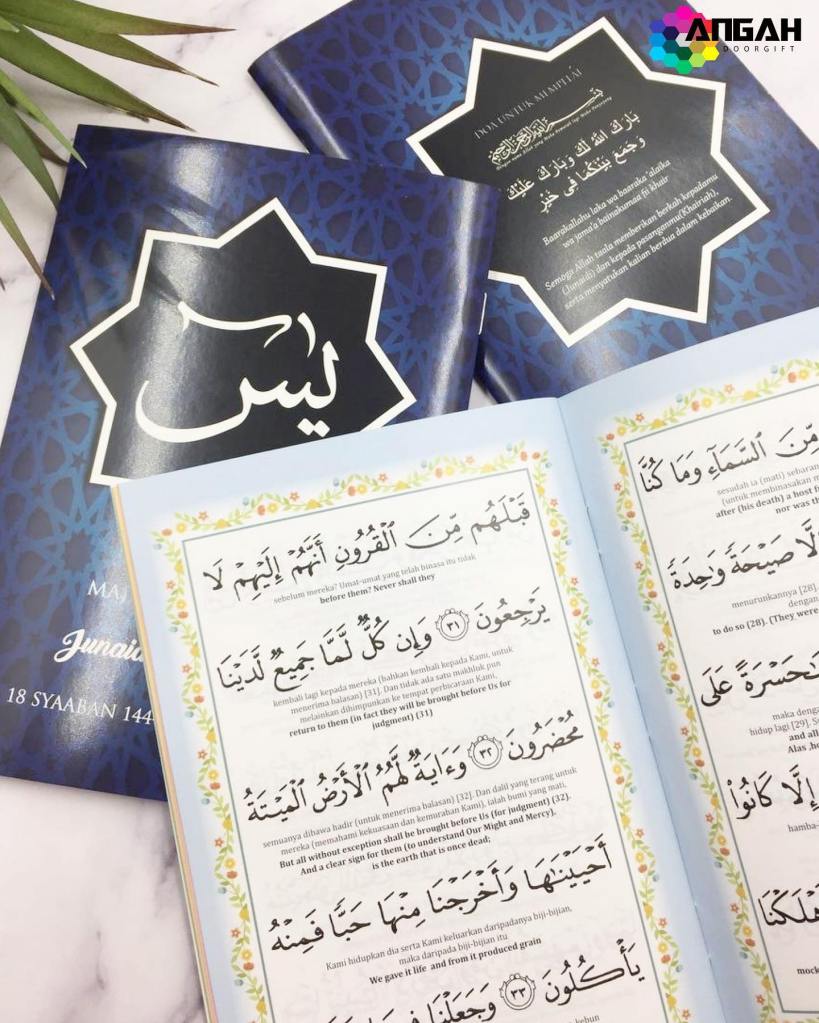 ANGAH
DOORGIFT
DOA UNTUK MEMPELAI
بَارَكَ اللهُ لَكَ وَبَارَكَ عَلَيْكَ
وَجَمَعَ بَيْنَكُمَا فِي خَيْرٍ
Baarakallahu laka wa baaraka 'alaika
wa jama'a bainakumaa fii khair
Semoga Allah taala memberikan berkah kepadamu
(Junaidi) dan kepada pasanganmu(Khairiah),
serta menyatukan kalian berdua dalam kebaikan.
يس
MAJ
Junaid
18 SYAABAN 144
قَبْلَهُم مِّنَ ٱلْقُرُونِ أَنَّهُمْ إِلَيْهِمْ لَا
sebelum mereka? Umat-umat yang telah binasa itu tidak
before them? Never shall they
يَرْجِعُونَ ٣١ وَإِن كُلٌّ لَّمَّا جَمِيعٌ لَّدَيْنَا
kembali lagi kepada mereka (bahkan kembali kepada Kami, untuk
menerima balasan) [31]. Dan tidak ada satu makhluk pun
melainkan dihimpunkan ke tempat perbicaraan Kami,
return to them (in fact they will be brought before Us for
judgment) (31)
مُحْضَرُونَ ٣٢ وَءَايَةٌ لَّهُمُ ٱلْأَرْضُ ٱلْمَيْتَةُ
semuanya dibawa hadir (untuk menerima balasan) [32]. Dan dalil yang terang untuk
mereka (memahami kekuasaan dan kemurahan Kami), ialah bumi yang mati,
But all without exception shall be brought before Us (for judgment) (32).
And a clear sign for them (to understand Our Might and Mercy),
is the earth that is once dead;
أَحْيَيْنَٰهَا وَأَخْرَجْنَا مِنْهَا حَبًّا فَمِنْهُ
Kami hidupkan dia serta Kami keluarkan daripadanya biji-bijian,
maka daripada biji-bijian itu
We gave it life and from it produced grain
يَأْكُلُونَ ٣٣ وَجَعَلْنَا
kebun
مِّنَ ٱلسَّمَآءِ وَمَا كُنَّا
sesudah ia (mati) sebaran
(untuk membinasakan m
after (his death) a host f
nor was th
إِلَّا صَيْحَةً وَٰحِدَةً
menurunkannya [28].
dengan
to do so (28). (They were
يَٰحَسْرَةً عَلَى
maka denga
hidup lagi [29]. S
and all
Alas ,ho
إِلَّا كَانُوا۟
hamba-
أَهْلَكْنَا
mock